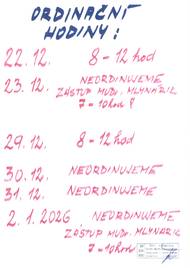 ORDINAČNÍ
HODINY:
22.12. 8 - 12 hod
23.12. NEORDINUJEME
ZÁSTUP MUDr. MLYNÁRIK
7 - 10 hod !
29.12. 8 - 12 hod
30.12. NEORDINUJEME
31.12. NEORDINUJEME
2.1.2026 NEORDINUJEME
ZÁSTUP MUDr. MLYNÁRIK
7 - 10 hod